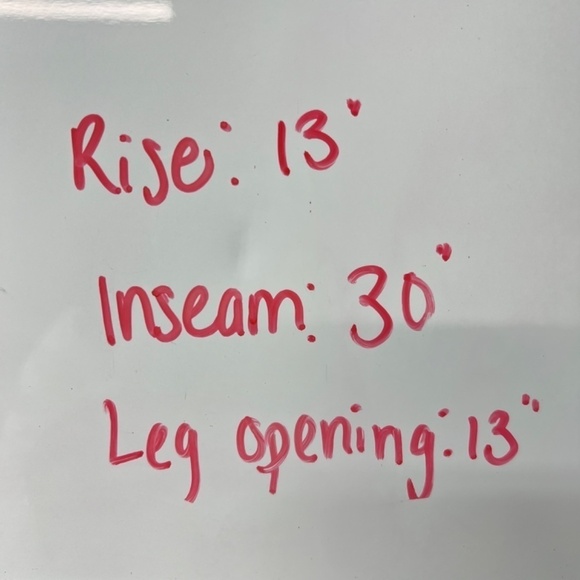 Rise: 13"
Inseam: 30"
Leg opening: 13"